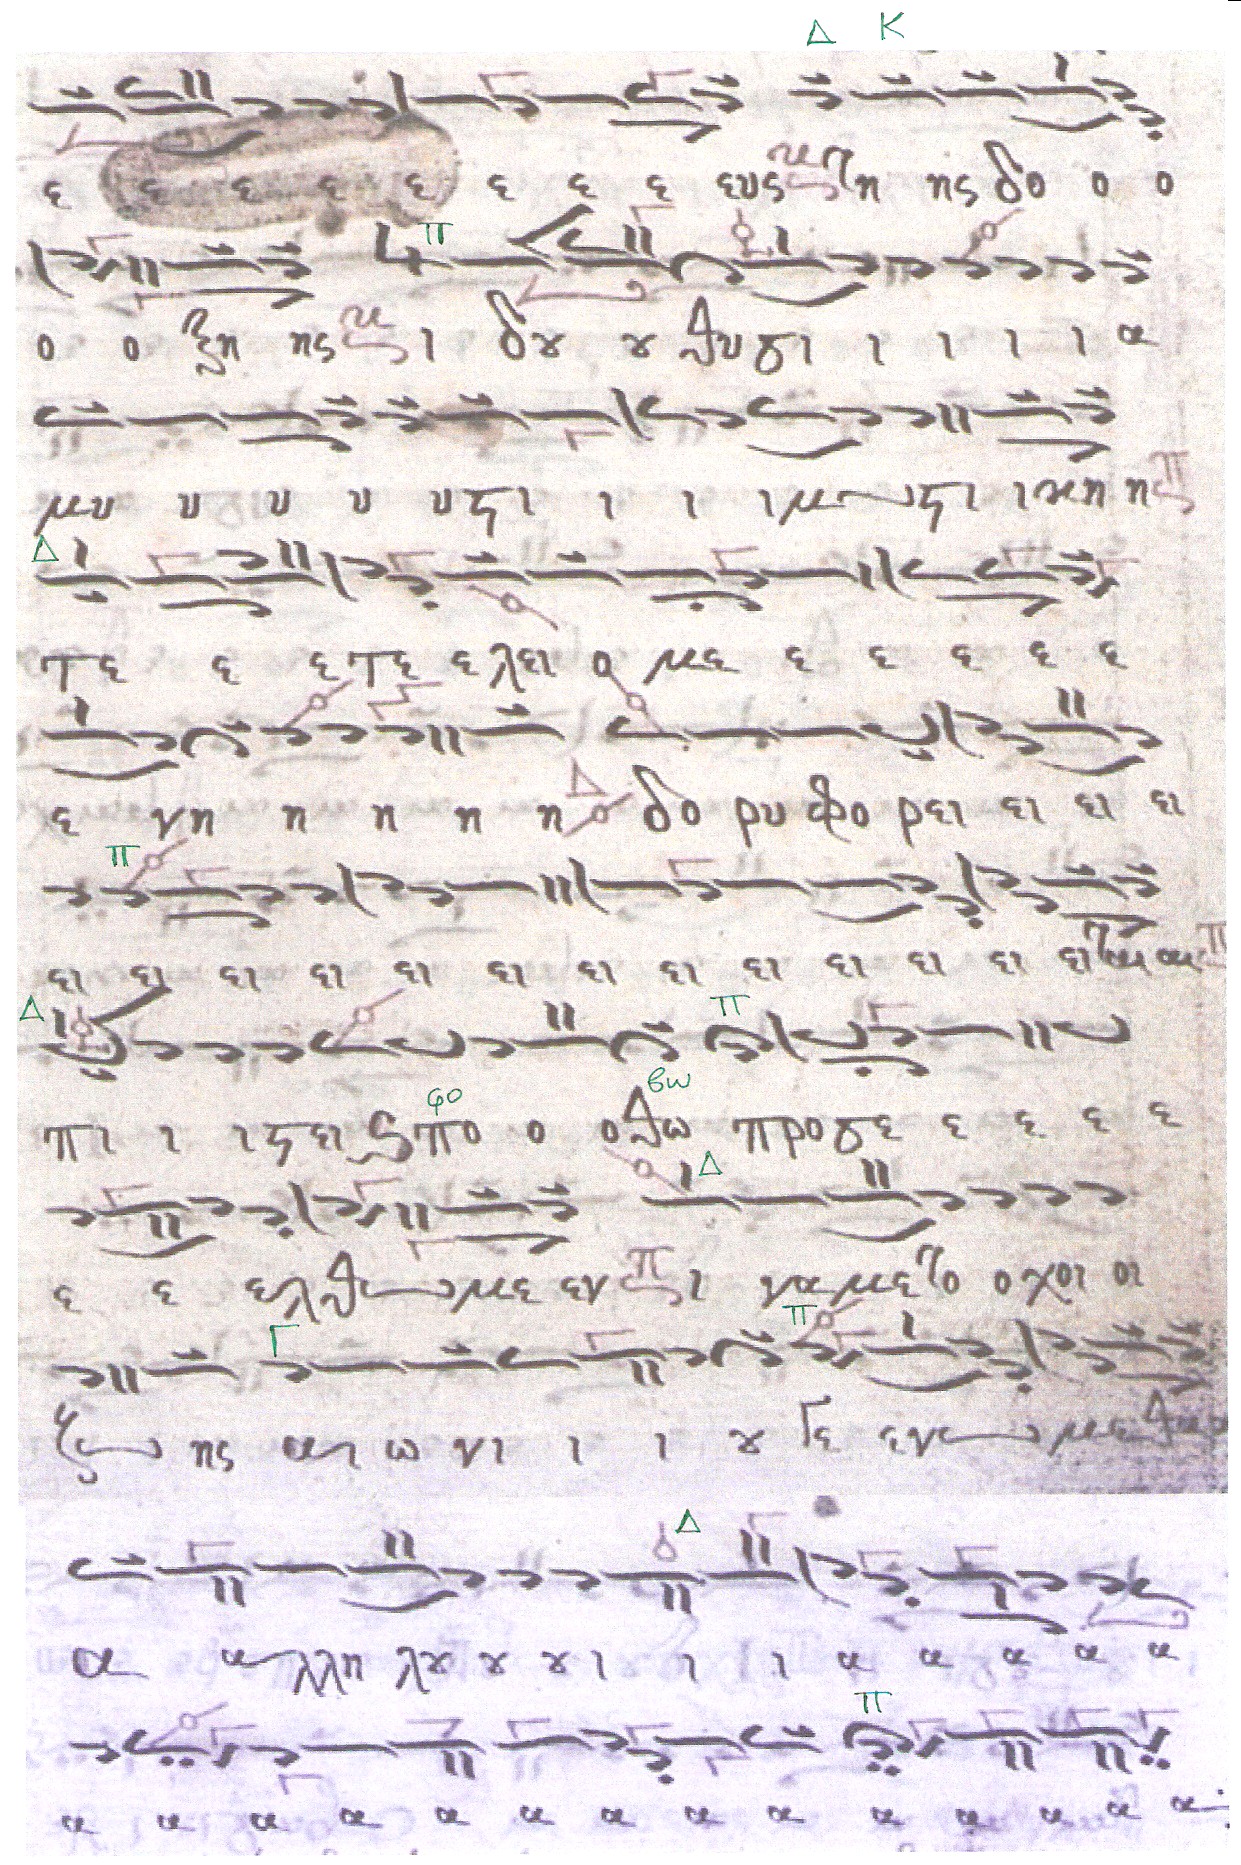 Δ Κ
ε ε ε ε ε ε ε ε ευς τη ης δο ο ο
π
ο ο ξη ης ι δȣ ȣ θυγι ι ι ι ι α
μυ υ υ υ υ ςι ι ι ι μ ςι ι κη η π
Δ
τε ε ε τε ε λει ο με ε ε ε ε ε
ε νη η η η η Δ δο ρυ φο ρει ει ει ει
π
ει ει ει ει ει ει ει ει ει ει ει ει ει ται αι π
Δ π
φο βω
πι ι ι ςει πο ο ο θω προ γε ε ε ε ε
Δ
ε ε ελθω με εν π ι να με το οχοι οι
Γ π
ζω ης αι ω νι ι ι ȣ γε ενω με θα
Δ
α αλλη λȣ ȣ ȣ ι ι ι ι α α α α α
π
α α α α α α α α α α α α α α